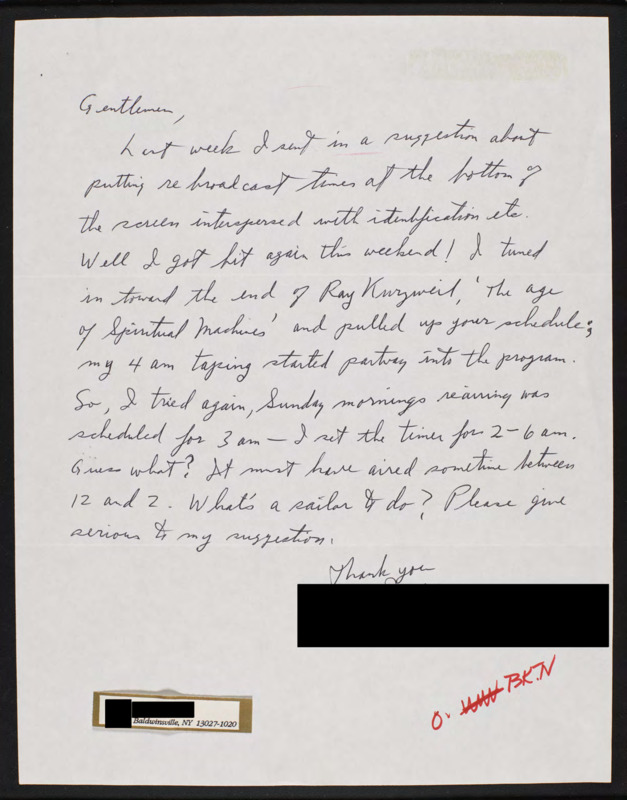 Gentlemen,
Last week I sent in a suggestion about
putting rebroadcast times at the bottom of
the screen interspersed with identification etc.
Well I got hit again this weekend! I tuned
in toward the end of Ray Kurzweil, 'The age
of Spiritual Machines' and pulled up your schedule;
my 4 am taping started partway into the program.
So, I tried again, Sunday mornings reairing was
scheduled for 3 am — I set the timer for 2-6 am.
Guess what? It must have aired sometime between
12 and 2. What's a sailor to do? Please give
serious to my suggestion.
Thank you
O. BK.N
Baldwinsville, NY 13027-1020